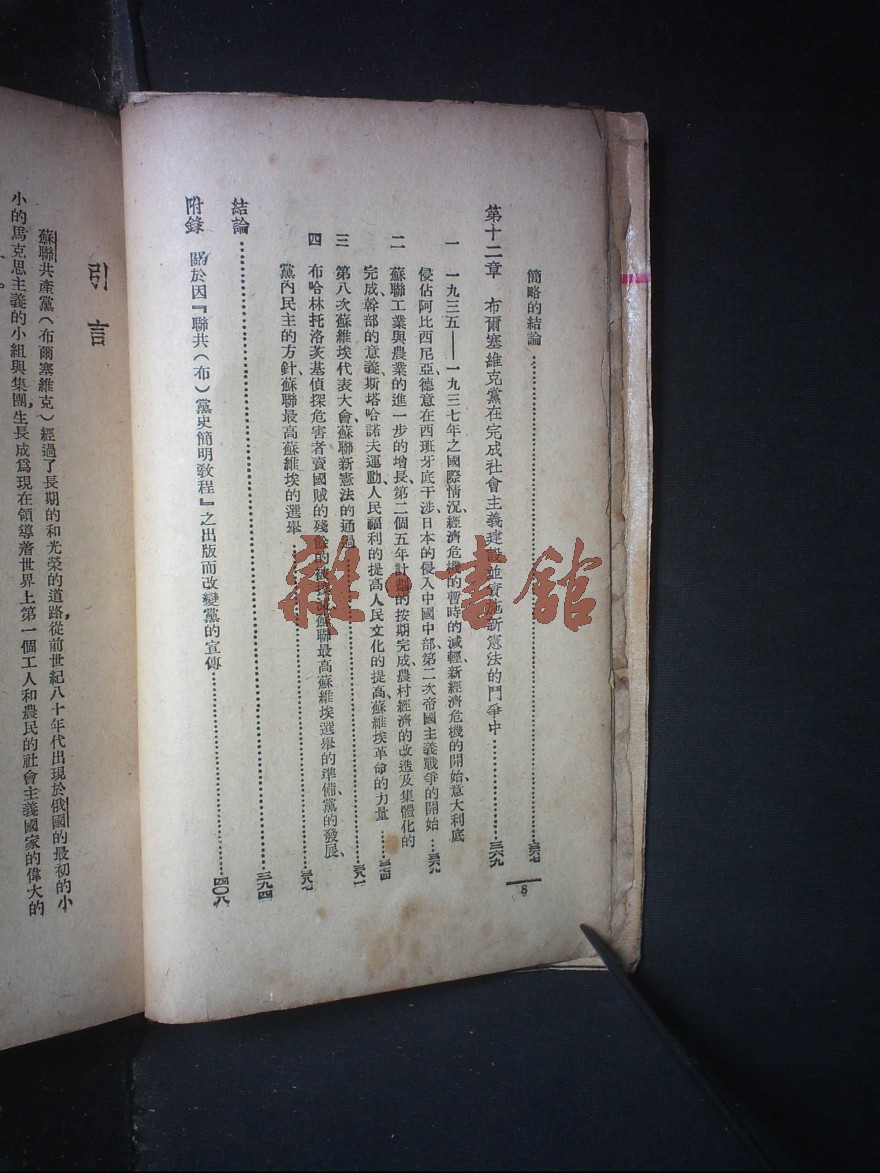 簡略的結論……三六七
第十二章　布爾塞維克黨在完成社會主義建設並實施新憲法的鬥爭中……三六九
一　一九三五——一九三七年之國際情況、經濟危機的暫時的減輕、新經濟危機的開始、意大利底
侵佔阿比西尼亞、德意在西班牙底干涉、日本的侵入中國中部、第二次帝國主義戰爭的開始……三六九
二　蘇聯工業與農業的進一步的增長、第二個五年計劃的按期完成、農村經濟的改造及集體化的
完成、幹部的意義、斯塔哈諾夫運動、人民福利的提高、人民文化的提高、蘇維埃革命的力量……三七四
三　第八次蘇維埃代表大會、蘇聯新憲法的通過……三八一
四　布哈林托洛茨基偵探危害者賣國賊的殘餘的蘇聯最高蘇維埃選舉的準備、黨的發展、
黨內民主的方針、蘇聯最高蘇維埃的選舉……三八七
結論……三九四
附錄　關於因『聯共（布）黨史簡明教程』之出版而改變黨的宣傳……四〇八
8
雜·書館
引言
蘇聯共產黨（布爾塞維克）經過了長期的和光榮的道路，從前世紀八十年代出現於俄國的最初的小
小的馬克思主義的小組與集團，生長成為現在領導着世界上第一個工人和農民的社會主義國家的偉大的